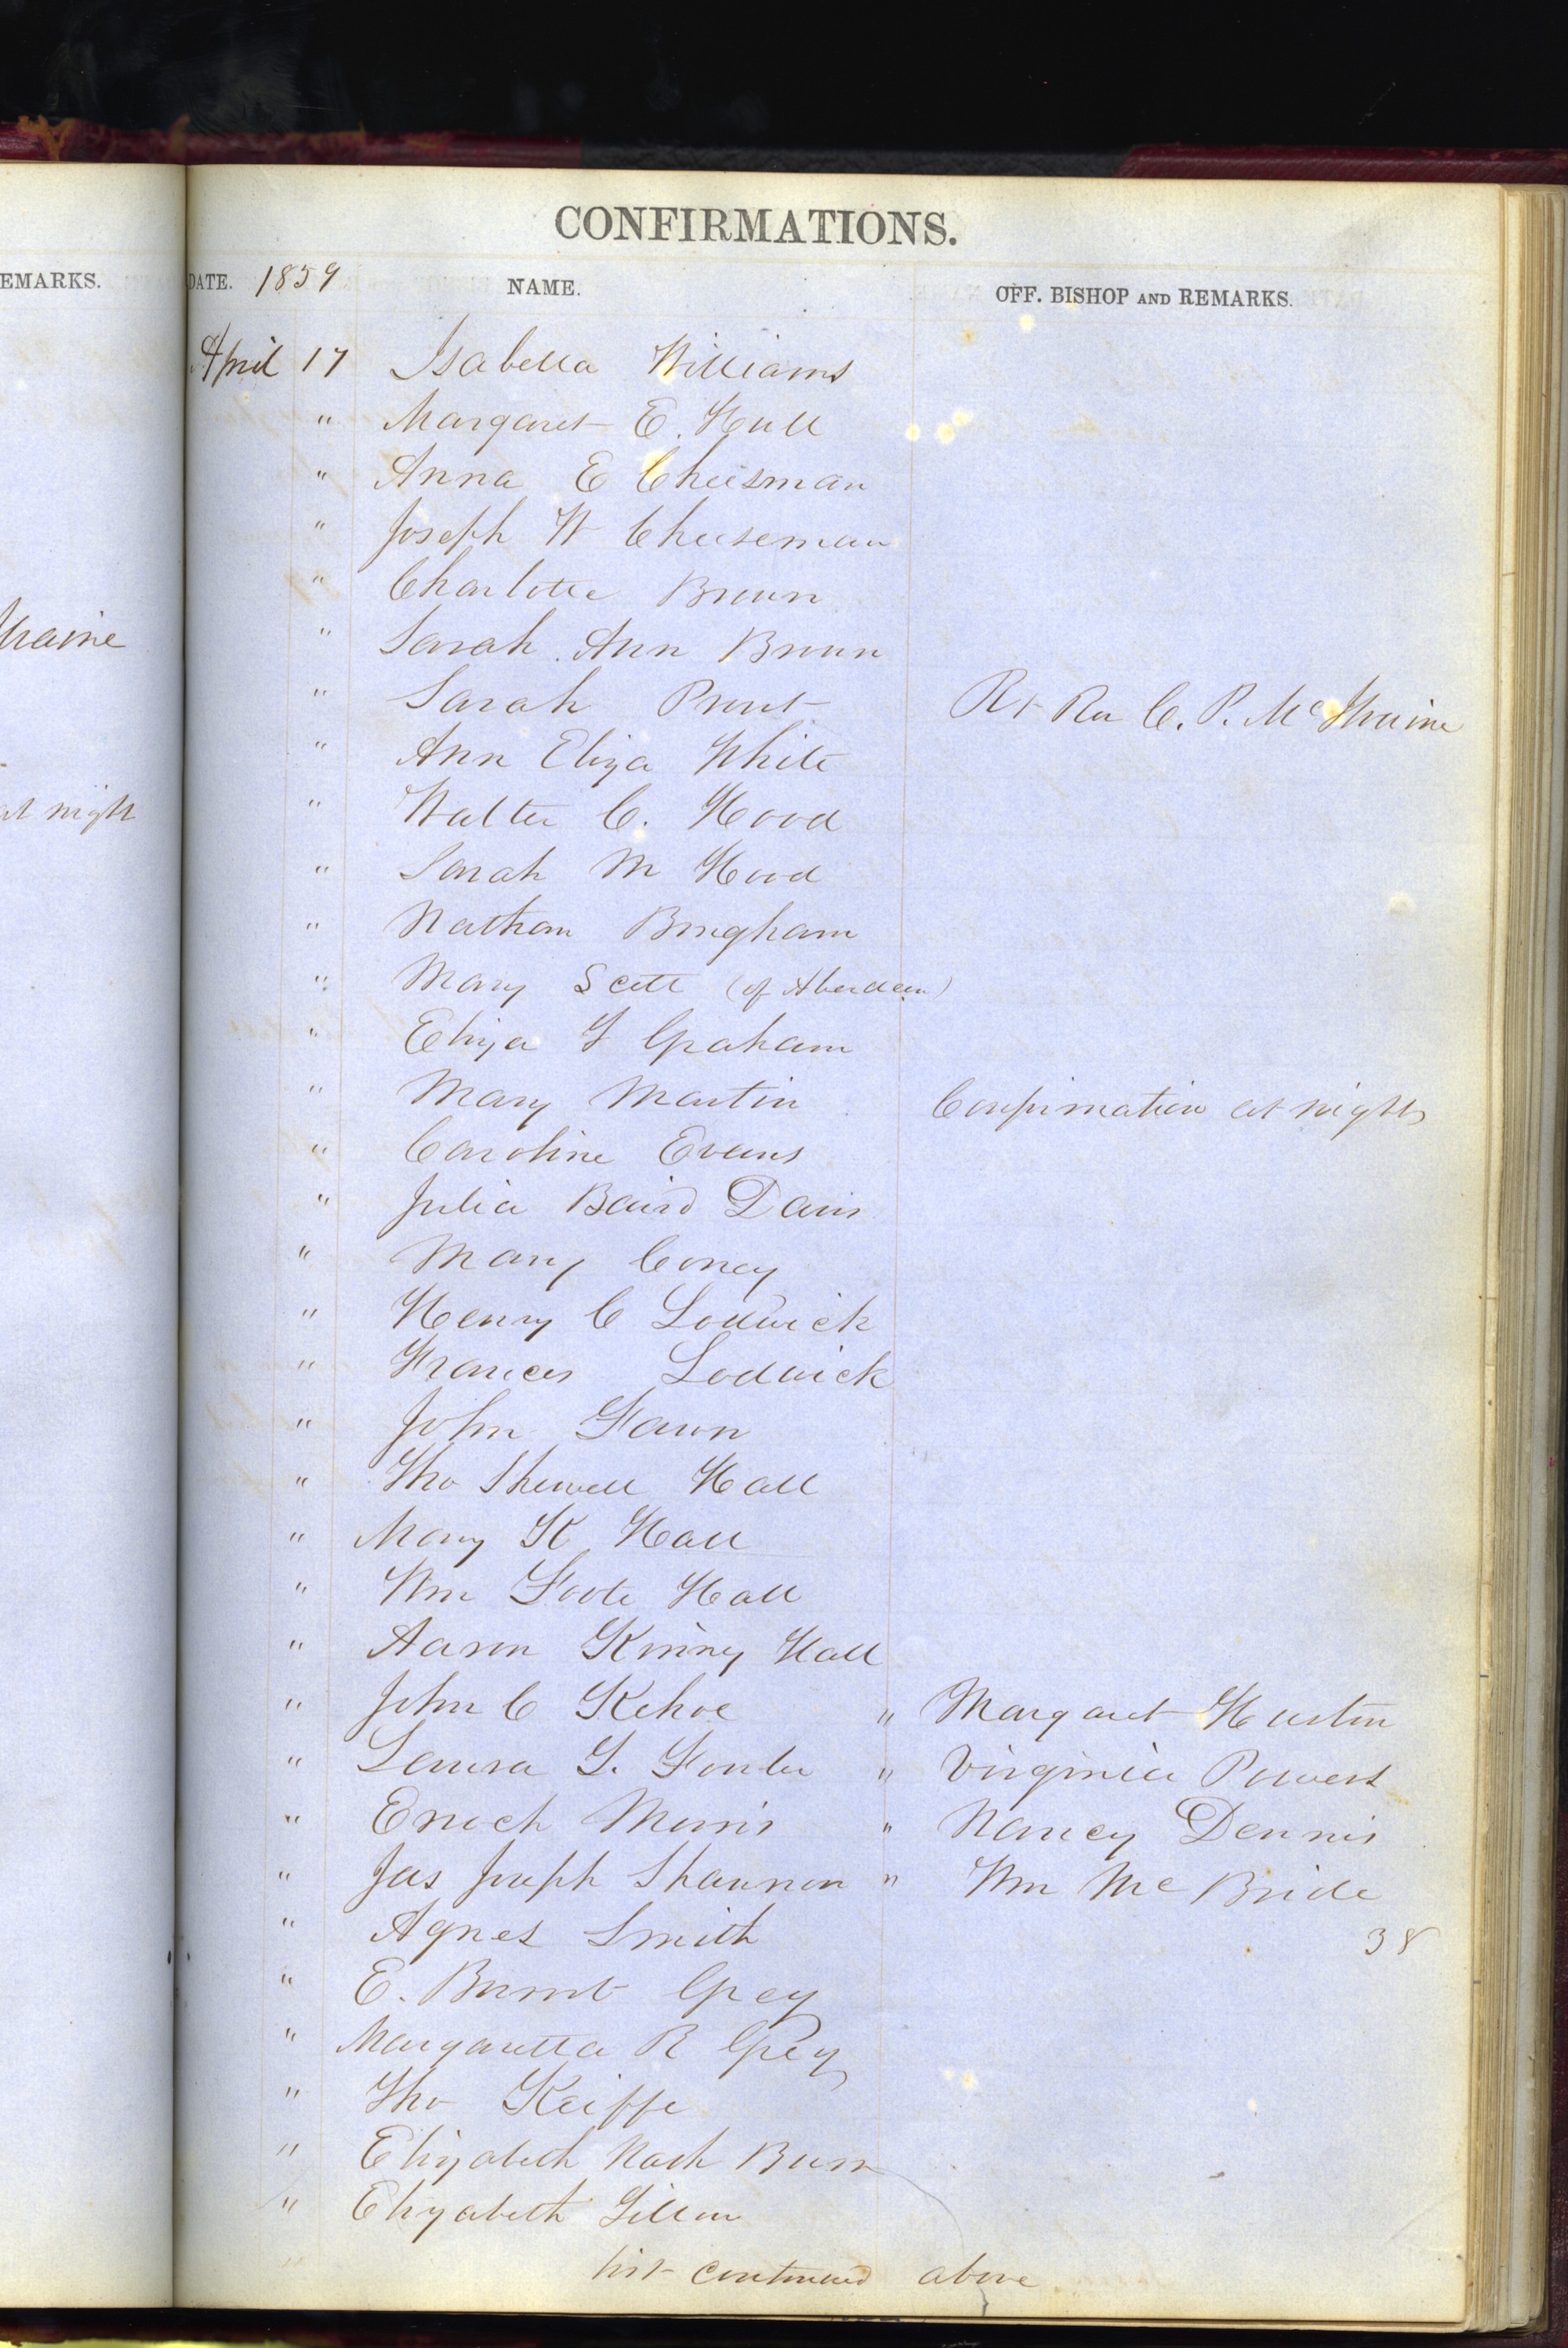 CONFIRMATIONS.
EMARKS. DATE. 1859 NAME. OFF. BISHOP AND REMARKS.
April 17 Isabella Williams
" Margaret E. Hull
" Anna E Cheesman
" Joseph W Cheeseman
" Charlotte Brown
" Sarah Ann Brown
" Sarah Prout Rt Rev C. P. McIlvaine
" Ann Eliza White
at night " Walter C. Hood
" Sarah M Hood
" Nathan Bingham
" Mary Scott (of Aberdeen)
" Eliza Graham
" Mary Martin Confirmation at night
" Caroline Evans
" Julia Baird Davis
" Mary Coney
" Henry C Lodwick
" Frances Lodwick
" John Fawn
" Tho Shewell Hall
" Mary K Hall
" Wm Foote Hall
" Aaron Kinny Hall
" John C Kehoe " Margaret Huston
" Laura Fowler " Virginia Powers
" Enoch Morris " Nancy Dennis
" Jas Joseph Shannon " Wm McBride
" Agnes Smith 38
" E. Burnt Grey
" Margaretta R Grey
" Tho Keiffe
" Elizabeth Nash Burr
" Elizabeth
list continued above